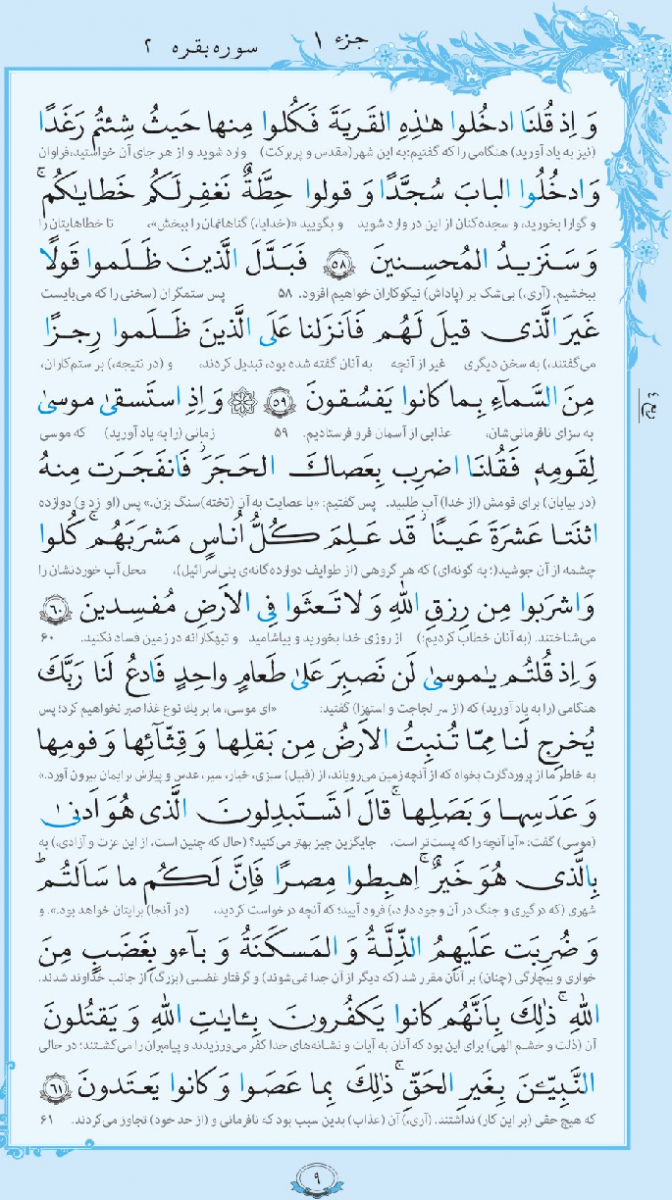 جزء ۱
سوره بقره ۲
وَ اِذ قُلنَا ادخُلوا هٰذِهِ القَریَةَ فَکُلوا مِنها حَیثُ شِئتُم رَغَدًا
(نیز به یاد آورید) هنگامی را که گفتیم: به این شهر (مقدس و پربرکت) وارد شوید و از هر جای آن خواستید، فراوان
وَ ادخُلُوا البابَ سُجَّدًا وَ قولوا حِطَّةٌ نَغفِرلَکُم خَطایاکُم ۚ
و گوارا بخورید، و سجده‌کنان از این در وارد شوید و بگویید «(خدایا،) گناهانمان را ببخش»، تا خطاهایتان را
وَ سَنَزیدُ المُحسِنینَ ﴿۵۸﴾ فَبَدَّلَ الَّذینَ ظَلَموا قَولًا
ببخشیم. (آری،) بی‌شک بر (پاداش) نیکوکاران خواهیم افزود. ۵۸ پس ستمگران (سخنی را که می‌بایست
غَیرَ الَّذی قیلَ لَهُم فَاَنزَلنا عَلَی الَّذینَ ظَلَموا رِجزًا
می‌گفتند،) به سخن دیگری غیر از آنچه به آنان گفته شده بود، تبدیل کردند، و (در نتیجه،) بر ستم‌کاران،
مِنَ السَّمآءِ بِما کانوا یَفسُقونَ ﴿۵۹﴾ وَ اِذِ استَسقیٰ موسیٰ
به سزای نافرمانی‌شان، عذابی از آسمان فرو فرستادیم. ۵۹ زمانی (را به یاد آورید) که موسی
لِقَومِه فَقُلنَا اضرِب بِعَصاکَ الحَجَرَ ؕ فَانفَجَرَت مِنهُ
(در بیابان) برای قومش (از خدا) آب طلبید. پس گفتیم: «با عصایت به آن (تخته)سنگ بزن.» پس (او زد و) دوازده
اثنَتا عَشرَةَ عَینًا ؕ قَد عَلِمَ کُلُّ اُناسٍ مَشرَبَهُم ۚ کُلوا
چشمه از آن جوشید(؛ به گونه‌ای) که هر گروهی (از طوایف دوازده‌گانه‌ی بنی‌اسرائیل)، محل آب خوردنشان را
وَ اشرَبوا مِن رِزقِ اللهِ وَ لا تَعثَوا فِی الاَرضِ مُفسِدینَ ﴿۶۰﴾
می‌شناختند. (به آنان خطاب کردیم:) از روزی خدا بخورید و بیاشامید و تبهکارانه در زمین فساد نکنید. ۶۰
وَ اِذ قُلتُم یٰموسیٰ لَن نَصبِرَ عَلیٰ طَعامٍ واحِدٍ فَادعُ لَنا رَبَّکَ
هنگامی (را به یاد آورید) که (از سر لجاجت و استهزا) گفتید: «ای موسی، ما بر یک نوع غذا صبر نخواهیم کرد؛ پس
یُخرِج لَنا مِمّا تُنبِتُ الاَرضُ مِن بَقلِها وَ قِثّآئِها وَ فومِها
به خاطر ما از پروردگارت بخواه که از آنچه زمین می‌رویاند، از (قبیل) سبزی، خیار، سیر، عدس و پیازش برایمان بیرون آورد.»
وَ عَدَسِها وَ بَصَلِها ۚ قالَ اَتَستَبدِلونَ الَّذی هُوَ اَدنیٰ
(موسی) گفت: «آیا آنچه را که پست‌تر است، جایگزین چیز بهتر می‌کنید؟ (حال که چنین است، از این عزت و آزادی،) به
بِالَّذی هُوَ خَیرٌ ۚ اِهبِطوا مِصرًا فَاِنَّ لَکُم ما سَاَلتُم ؕ
شهری (که درگیری و جنگ در آن وجود دارد،) فرود آیید؛ که آنچه درخواست کردید، (در آنجا) برایتان خواهد بود.». و
وَ ضُرِبَت عَلَیهِمُ الذِّلَّةُ وَ المَسکَنَةُ وَ بآءو بِغَضَبٍ مِنَ
خواری و بیچارگی (چنان) بر آنان مقرر شد (که دیگر از آن جدا نمی‌شوند) و گرفتار غضبی (بزرگ) از جانب خداوند شدند.
اللهِ ۚ ذٰلِکَ بِاَنَّهُم کانوا یَکفُرونَ بِـٔایاتِ اللهِ وَ یَقتُلونَ
آن (ذلت و خشم الهی) برای این بود که آنان به آیات و نشانه‌های خدا کفر می‌ورزیدند و پیامبران را می‌کشتند؛ در حالی
النَّبِیّـٖنَ بِغَیرِ الحَقِّ ۚ ذٰلِکَ بِما عَصَوا وَ کانوا یَعتَدونَ ﴿۶۱﴾
که هیچ حقی (بر این کار) نداشتند. (آری،) آن (عذاب) بدین سبب بود که نافرمانی و (از حد خود) تجاوز می‌کردند. ۶۱
۹